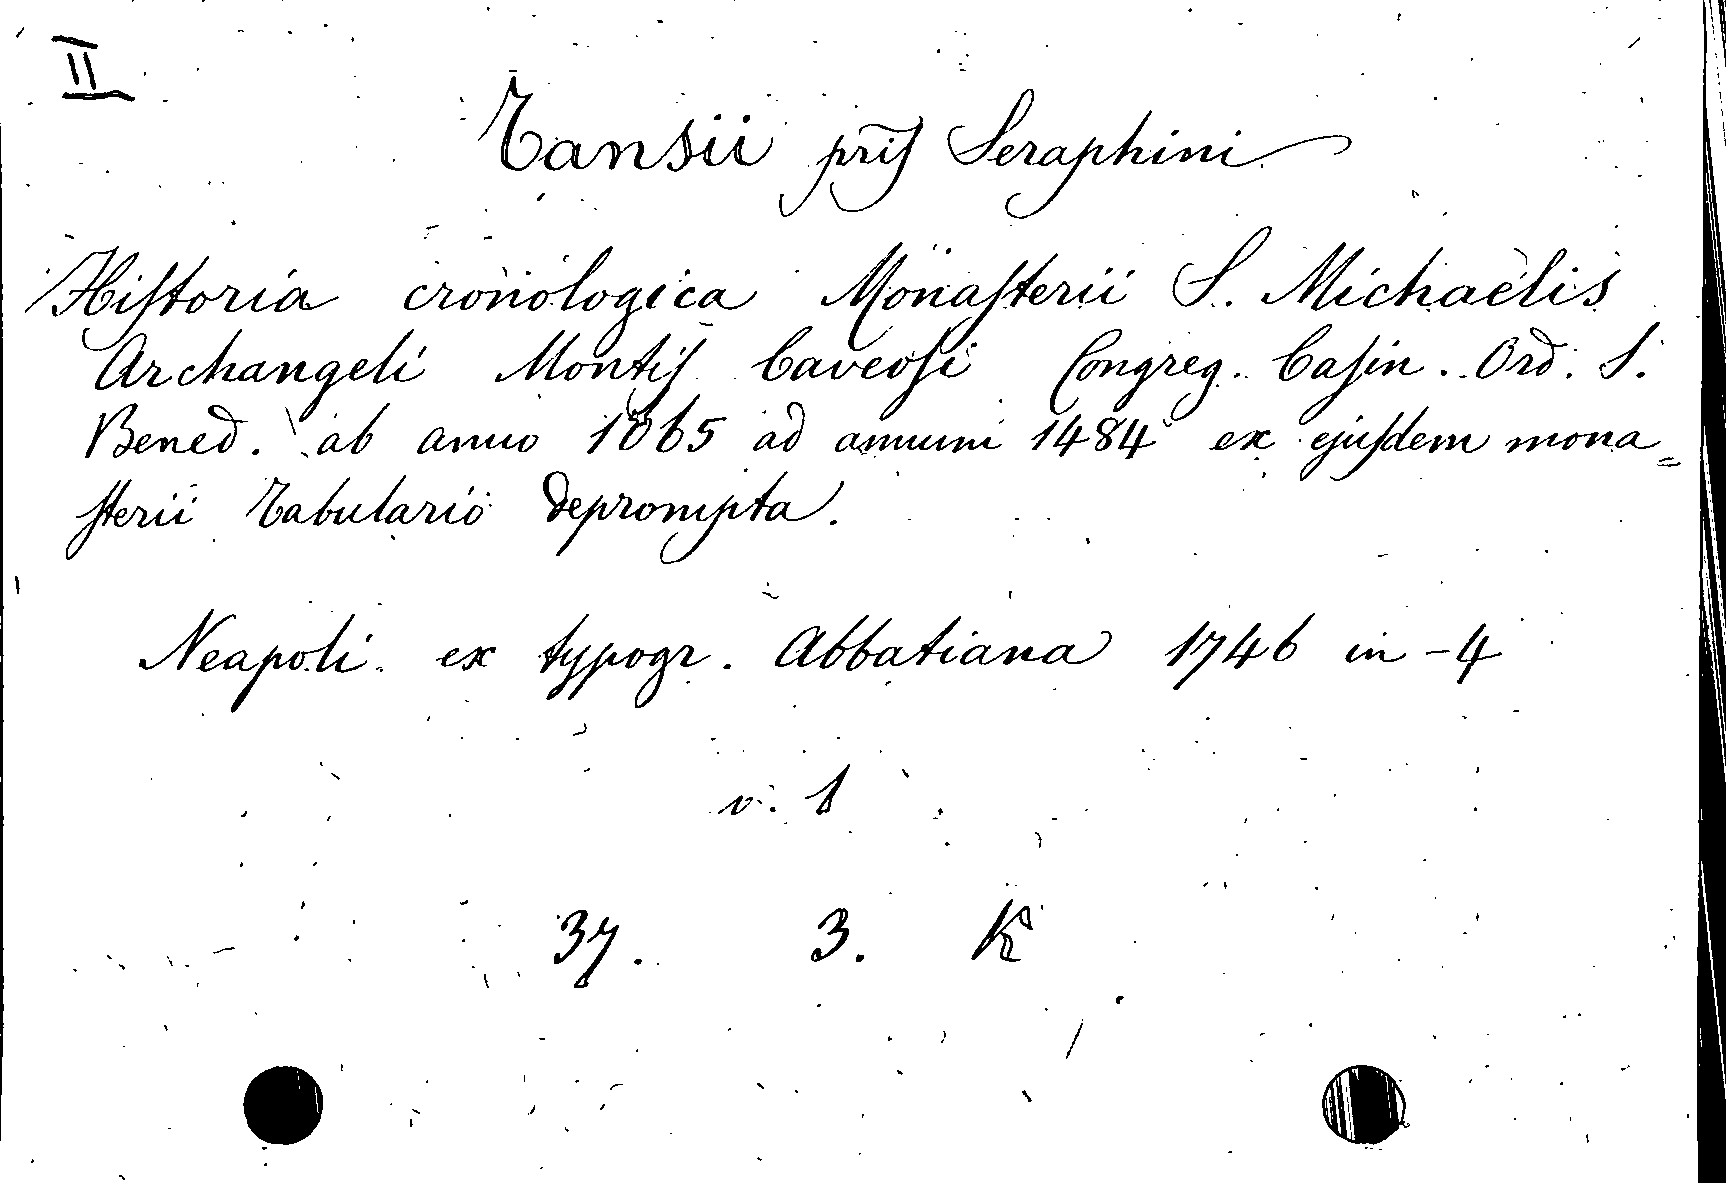 II
Tansii pris Seraphini
Hiſtoria cronologica Monaſterii S. Michaelis
Archangeli Montiſ Caveoſi Congreg. Caſin. Ord. S.
Bened. ab anno 1065 ad annum 1484 ex ejuſdem mona=
ſterii Tabulario deprompta.
Neapoli ex typogr. Abbatiana 1746 in-4
v. 1
37. 3. K